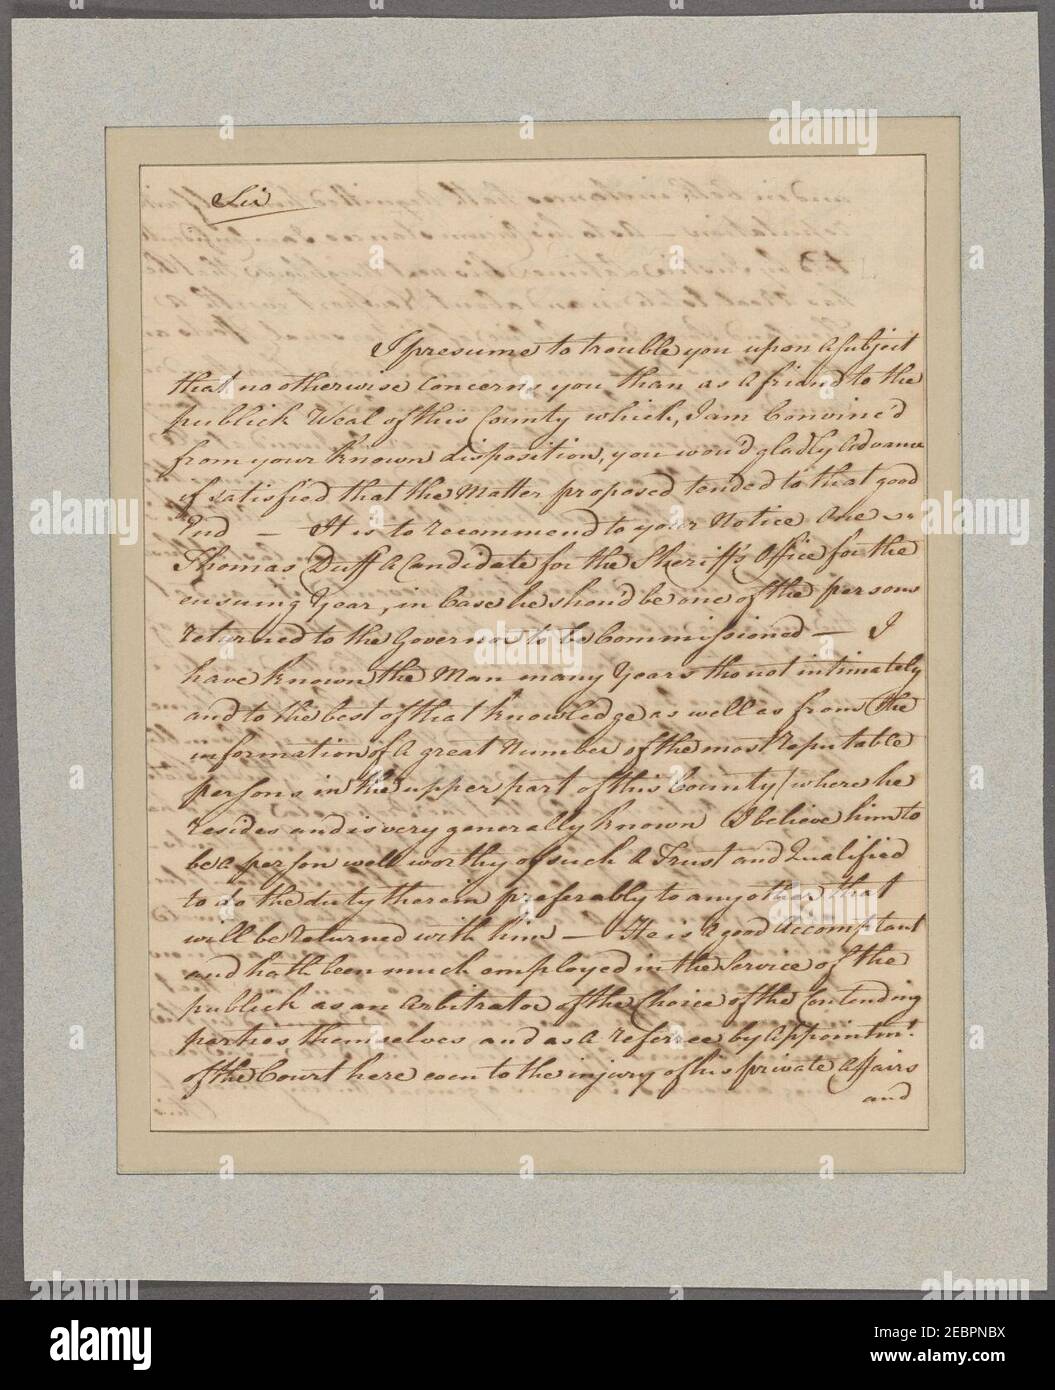 Sir
I presume to trouble you upon a Subject
that no otherwise Concerns you than as a friend to the
publick Weal of this County which, I am Convinc'd
from your known disposition, you wou'd gladly Advance
if satisfied that the Matter proposed tended to that good
End — It is to recommend to your Notice One
Thomas Duff a Candidate for the Sheriff's Office for the
ensuing Year, in Case he shou'd be one of the persons
returned to the Governor to be Commissioned — I
have known the Man many Years tho not intimately
and to the best of that knowledge as well as from the
information of a great Number of the most reputable
persons in the upper part of this County (where he
resides and is very generally known I believe him to
be a person well worthy of such a Trust and Qualified
to do the duty therein preferably to any other that
will be returned with him — He is a good Accomptant
and hath been much employed in the Service of the
publick as an Arbitrator of the Choice of the Contending
parties themselves and as a referree by Appointmt.
of the Court here even to the injury of his private Affairs
and
alamy
alamy
Image ID: 2EBPNBX
www.alamy.com